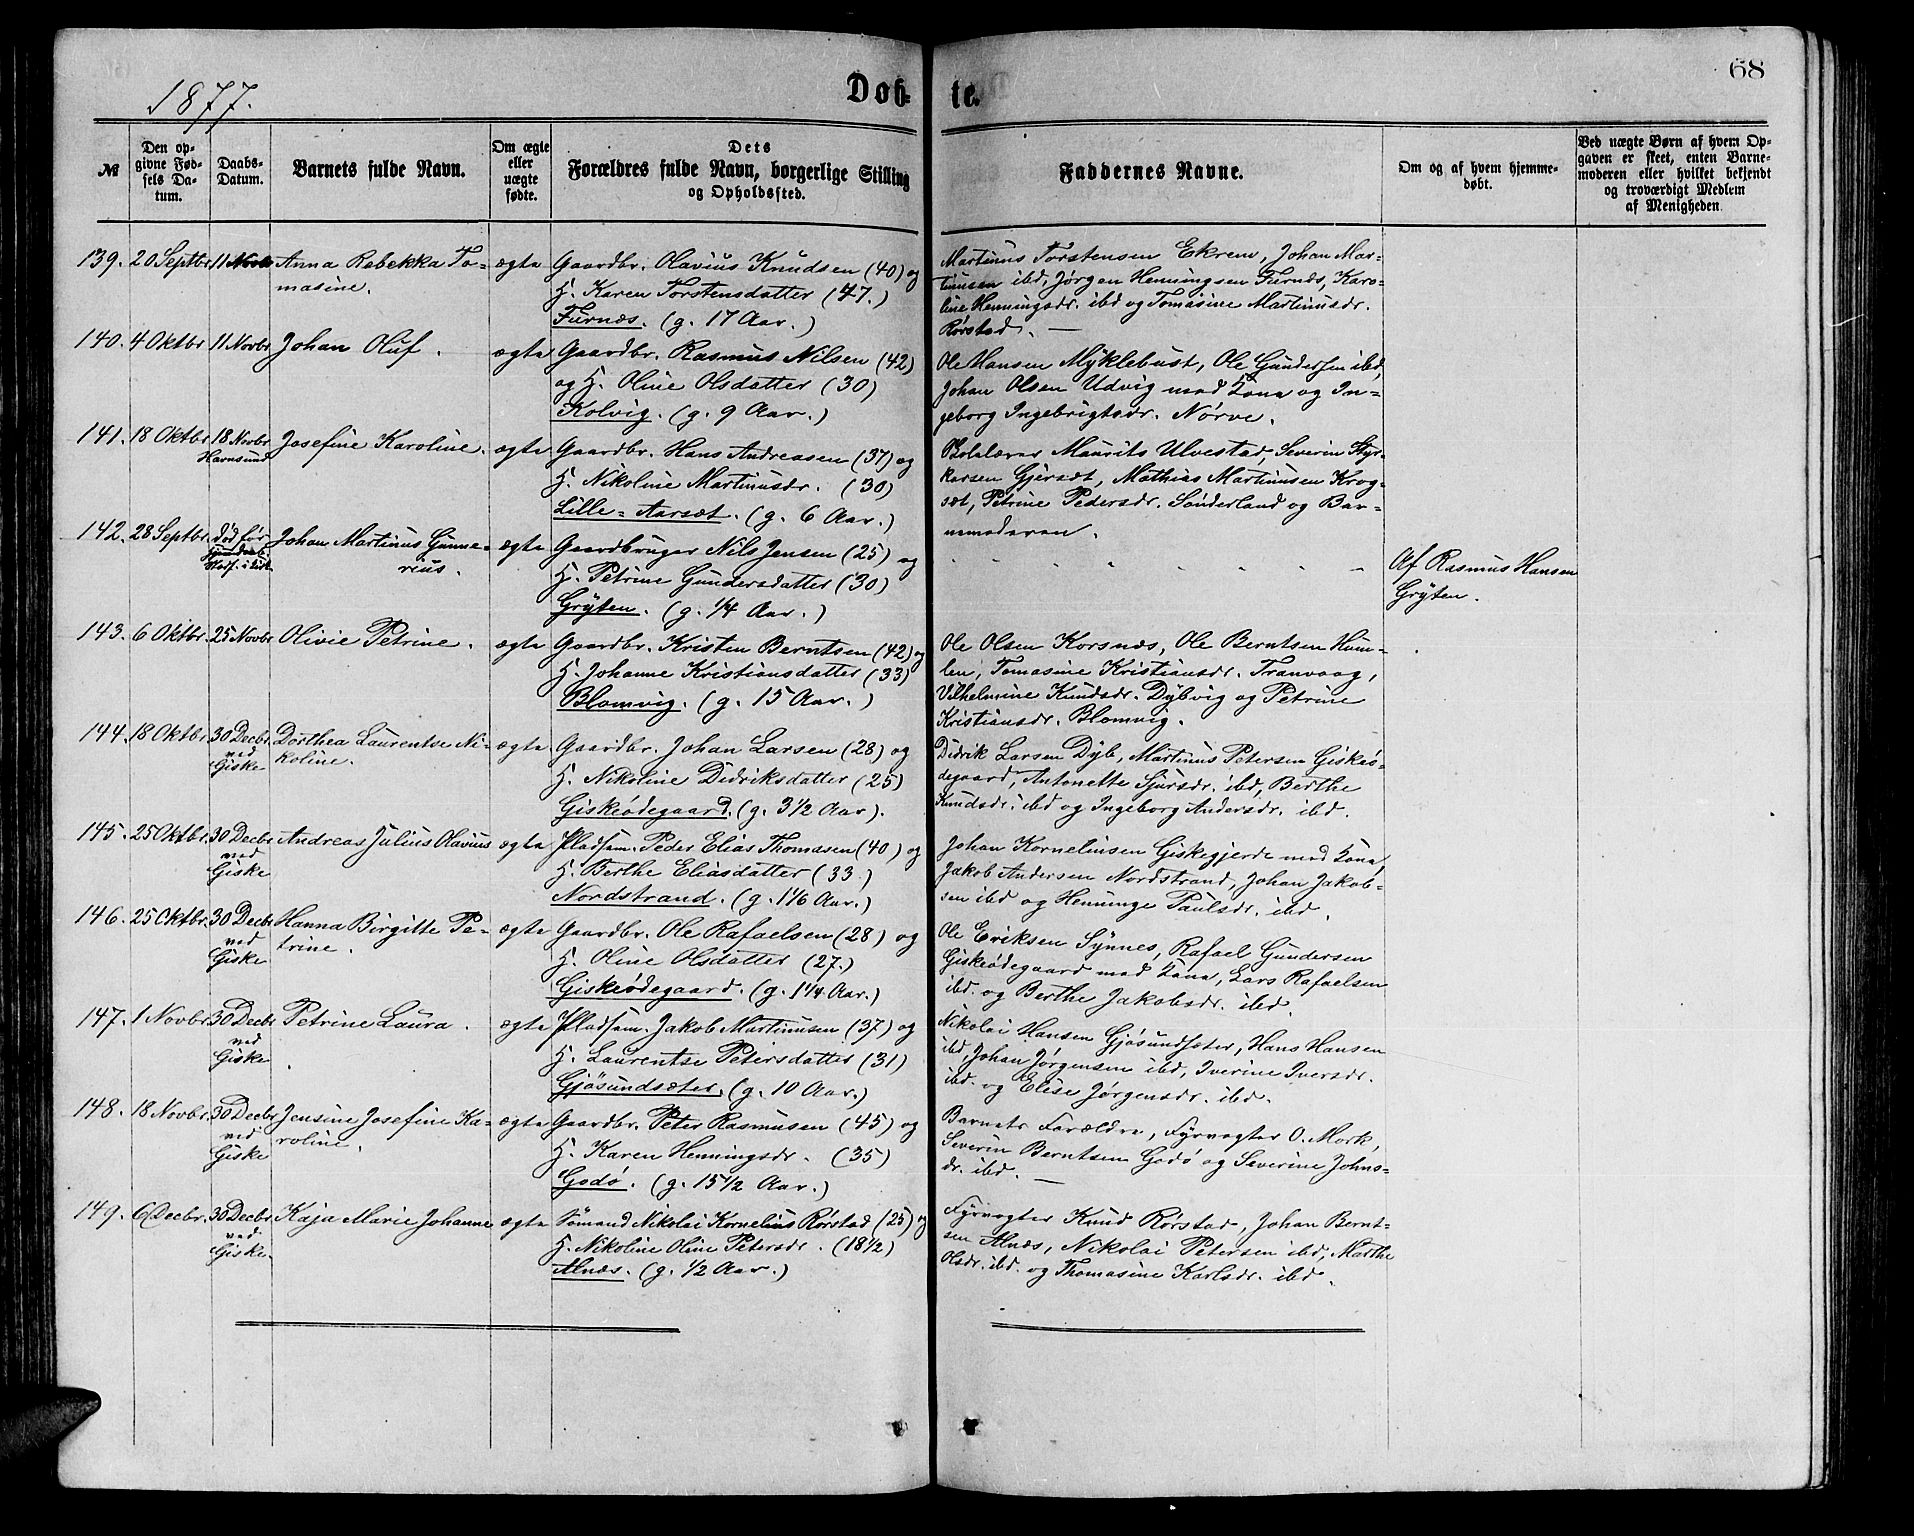 1877.
Døb-
te.
68
№
Den op-
givne Fød-
sels Da-
tum.
Daabs-
Datum.
Barnets fulde Navn.
Om ægte
eller
uægte
fødte.
Dets
Forældres fulde Navn, borgerlige Stilling
og Opholdssted.
Faddernes Navne.
Om og af hvem hjemme-
døbt.
Ved uægte Børn af hvem Op-
gaven er skeet, enten Barne-
moderen eller hvilket bekjendt
og troværdigt Medlem
af Menigheden.
139. 20 Septbr. 11 Novbr Anna Rebekka To-
masine.
ægte Gaardbr. Olavius Knudsen (40) og
H. Karen Torstensdatter (47.)
Furnæs. (g. 17 Aar.)
Martinus Torstensen Ekrem, Johan Mar-
tinusen ibd, Jørgen Henningsen Furnæs, Karo-
line Henningsdr. ibd og Tomasine Martinusdr.
Rørstad. —
140. 4 Oktbr 11 Novbr Johan Oluf.
ægte Gaardbr. Rasmus Nilsen (42)
og H. Oline Olsdatter (30)
Kolvig. (g. 9 Aar.)
Ole Hansen Myklebust, Ole Gundersen ibd,
Johan Olsen Udvig med Kona og In-
geborg Ingebrigtsdr. Nørve.
141. 18 Oktbr 18 Novbr Josefine Karoline.
Havnsund
ægte Gaardbr. Hans Andreasen (37) og
H. Nikoline Martinusdr. (30)
Lille-Aarsæt. (g. 6 Aar.)
Skolelærer Maurits Ulvestad, Severin Styr-
karsen Gjersæt, Mathias Martinusen Krog-
sæt, Petrine Pedersdr. Sønderland og Bar-
nemoderen.
142. 28 Septbr. død før Johan Martinus Gunne-
rius.
ægte Gaardbruger Nils Jensen (25) og
H. Petrine Gundersdatter (30)
Gryten. (g. 1/4 Aar.)
Af Rasmus Hansen
Gryten.
143. 6 Oktbr. 25 Novbr Olivie Petrine.
ægte Gaardbr. Kristen Berntsen (42) og
H. Johanne Kristiansdatter (33)
Blomvig. (g. 15 Aar.)
Ole Olsen Korsnæs, Ole Berntsen Hum-
len, Tomasine Kristiansdr. Tranvaag,
Vilhelmine Knudsdr. Dybvig og Petrine
Kristiansdr. Blomvig.
144. 18 Oktbr. 30 Decbr. Dorthea Laurentse Ni-
ved
Giske
koline.
ægte Gaardbr. Johan Larsen (28) og
H. Nikoline Didriksdatter (25)
Giskeødegaard. (g. 3 1/2 Aar).
Didrik Larsen Dyb, Martinus Petersen Giskeø-
degaard, Antonette Sjursdr. ibd, Berthe
Knudsdr. ibd og Ingeborg Andersdr. ibd.
145. 25 Oktbr. 30 Decbr Andreas Julius Olavius
ved
Giske
ægte Pladsm. Peder Elias Thomasen (40) og
H. Berthe Eliasdatter (33.)
Nordstrand. (g. 1 1/6 Aar.)
Johan Kornelinsen Giskegjerde med Kona,
Jakob Andersen Nordstrand, Johan Jakob-
sen ibd og Henninge Paulsdr. ibd.
146. 25 Oktbr. 30 Decbr Hanna Birgitte Pe-
ved
Giske
trine.
ægte Gaardbr. Ole Rafaelsen (28) og
H. Oline Olsdatter (27.)
Giskeødegaard. (g. 1 1/4 Aar.)
Ole Eriksen Synnes, Rafael Gundersen
Giskeødegaard med Kona, Lars Rafaelsen
ibd. og Berthe Jakobsdr. ibd.
147. 1 Novbr 30 Decbr Petrine Laura.
ved
Giske
ægte Pladsm. Jakob Martinusen (37) og
H. Laurentse Petersdatter (31)
Gjøsundsæter. (g. 10 Aar.)
Nikolai Hansen Gjøsundsæter, Hans Hansen
ibd, Johan Jørgensen ibd, Iverine Iversdr.
ibd. og Elise Jørgensdr. ibd.
148. 18 Novbr. 30 Decbr Jensine Josefine Ka-
ved
Giske
roline.
ægte Gaardbr. Peter Rasmusen (45) og
H. Karen Henningsdr. (35)
Godø. (g. 15 1/2 Aar.)
Barnets Forældre, Fyrvogter O. Mork,
Severin Berntsen Godø og Severine Johns-
dr. ibd. —
149. 6 Decbr. 30 Decbr Kaja Marie Johanne
ved
Giske.
ægte Sømand Nikolai Kornelius Rørstad (25) og
H. Nikoline Oline Petersdr. (18 1/2)
Alnæs. (g. 1/2 Aar.)
Fyrvogter Knud Rørstad, Johan Bernt-
sen Alnæs, Nikolai Petersen ibd, Marthe
Olsdr. ibd. og Thomasine Karlsdr. ibd.